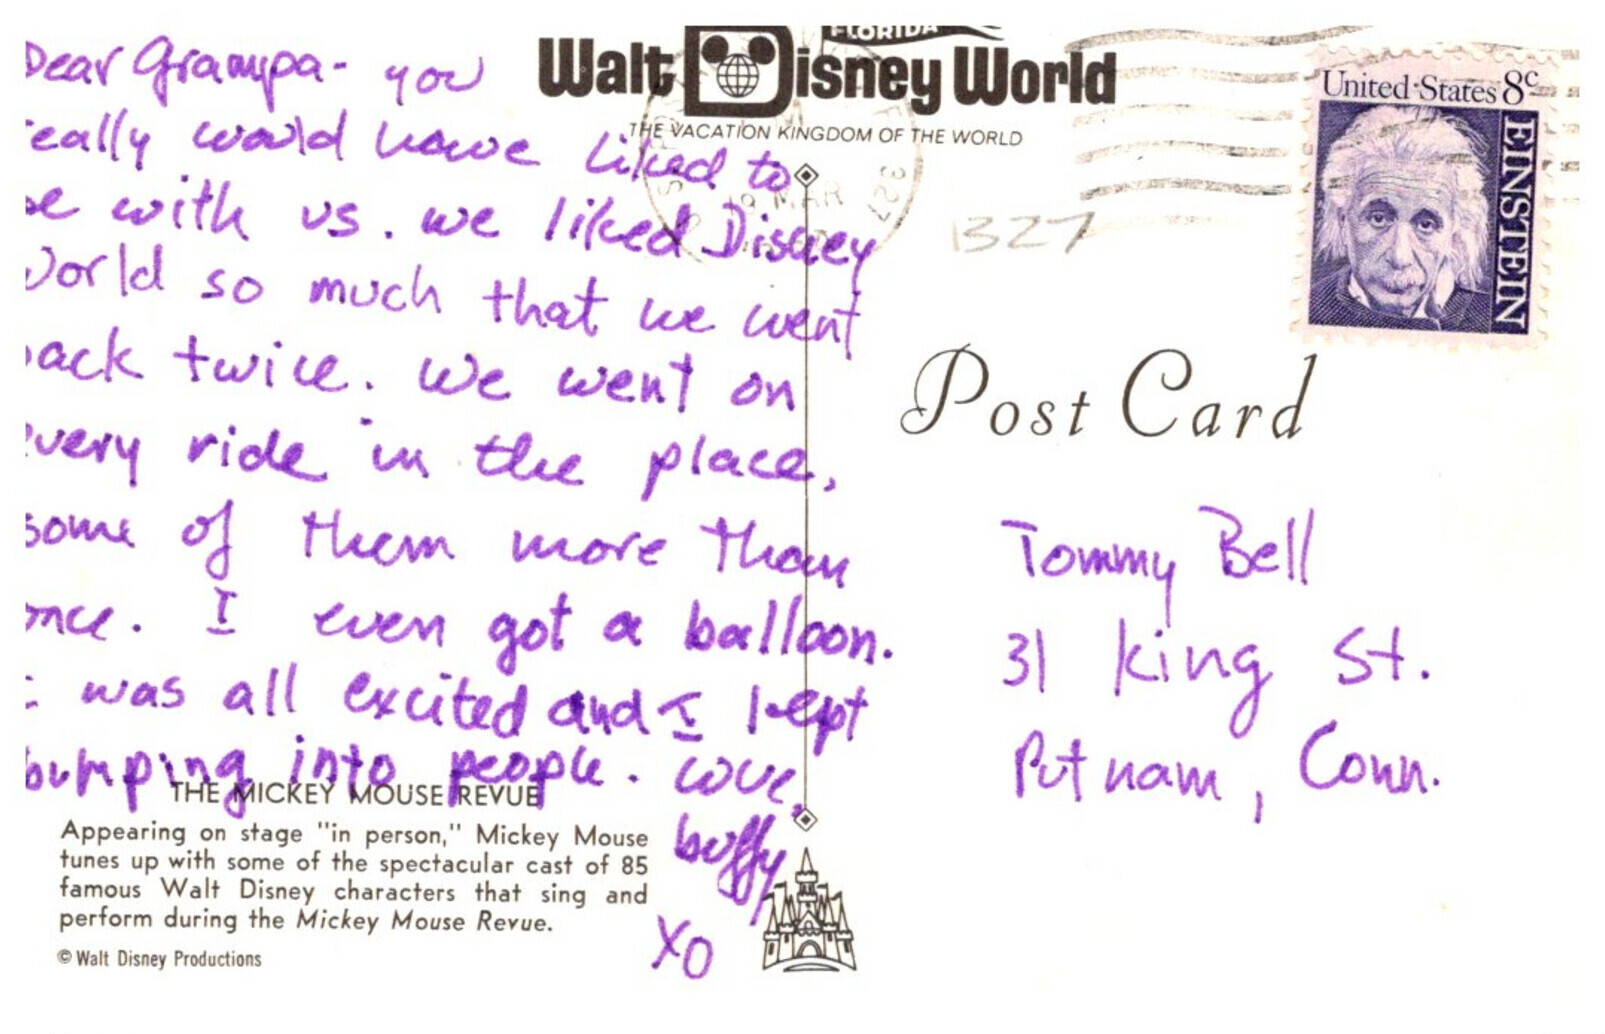 Dear Grampa- you
eally would have liked to
be with us. we liked Disney
World so much that we went
ack twice. We went on
very ride in the place,
some of them more than
once. I even got a balloon.
I was all excited and I kept
bumping into people. Love,
buffy
XO
FLORIDA
Walt Disney World
THE VACATION KINGDOM OF THE WORLD
19 MAR
327
1327
United States 8c
EINSTEIN
Post Card
Tommy Bell
31 King St.
Putnam, Conn.
THE MICKEY MOUSE REVUE
Appearing on stage "in person," Mickey Mouse
tunes up with some of the spectacular cast of 85
famous Walt Disney characters that sing and
perform during the Mickey Mouse Revue.
© Walt Disney Productions